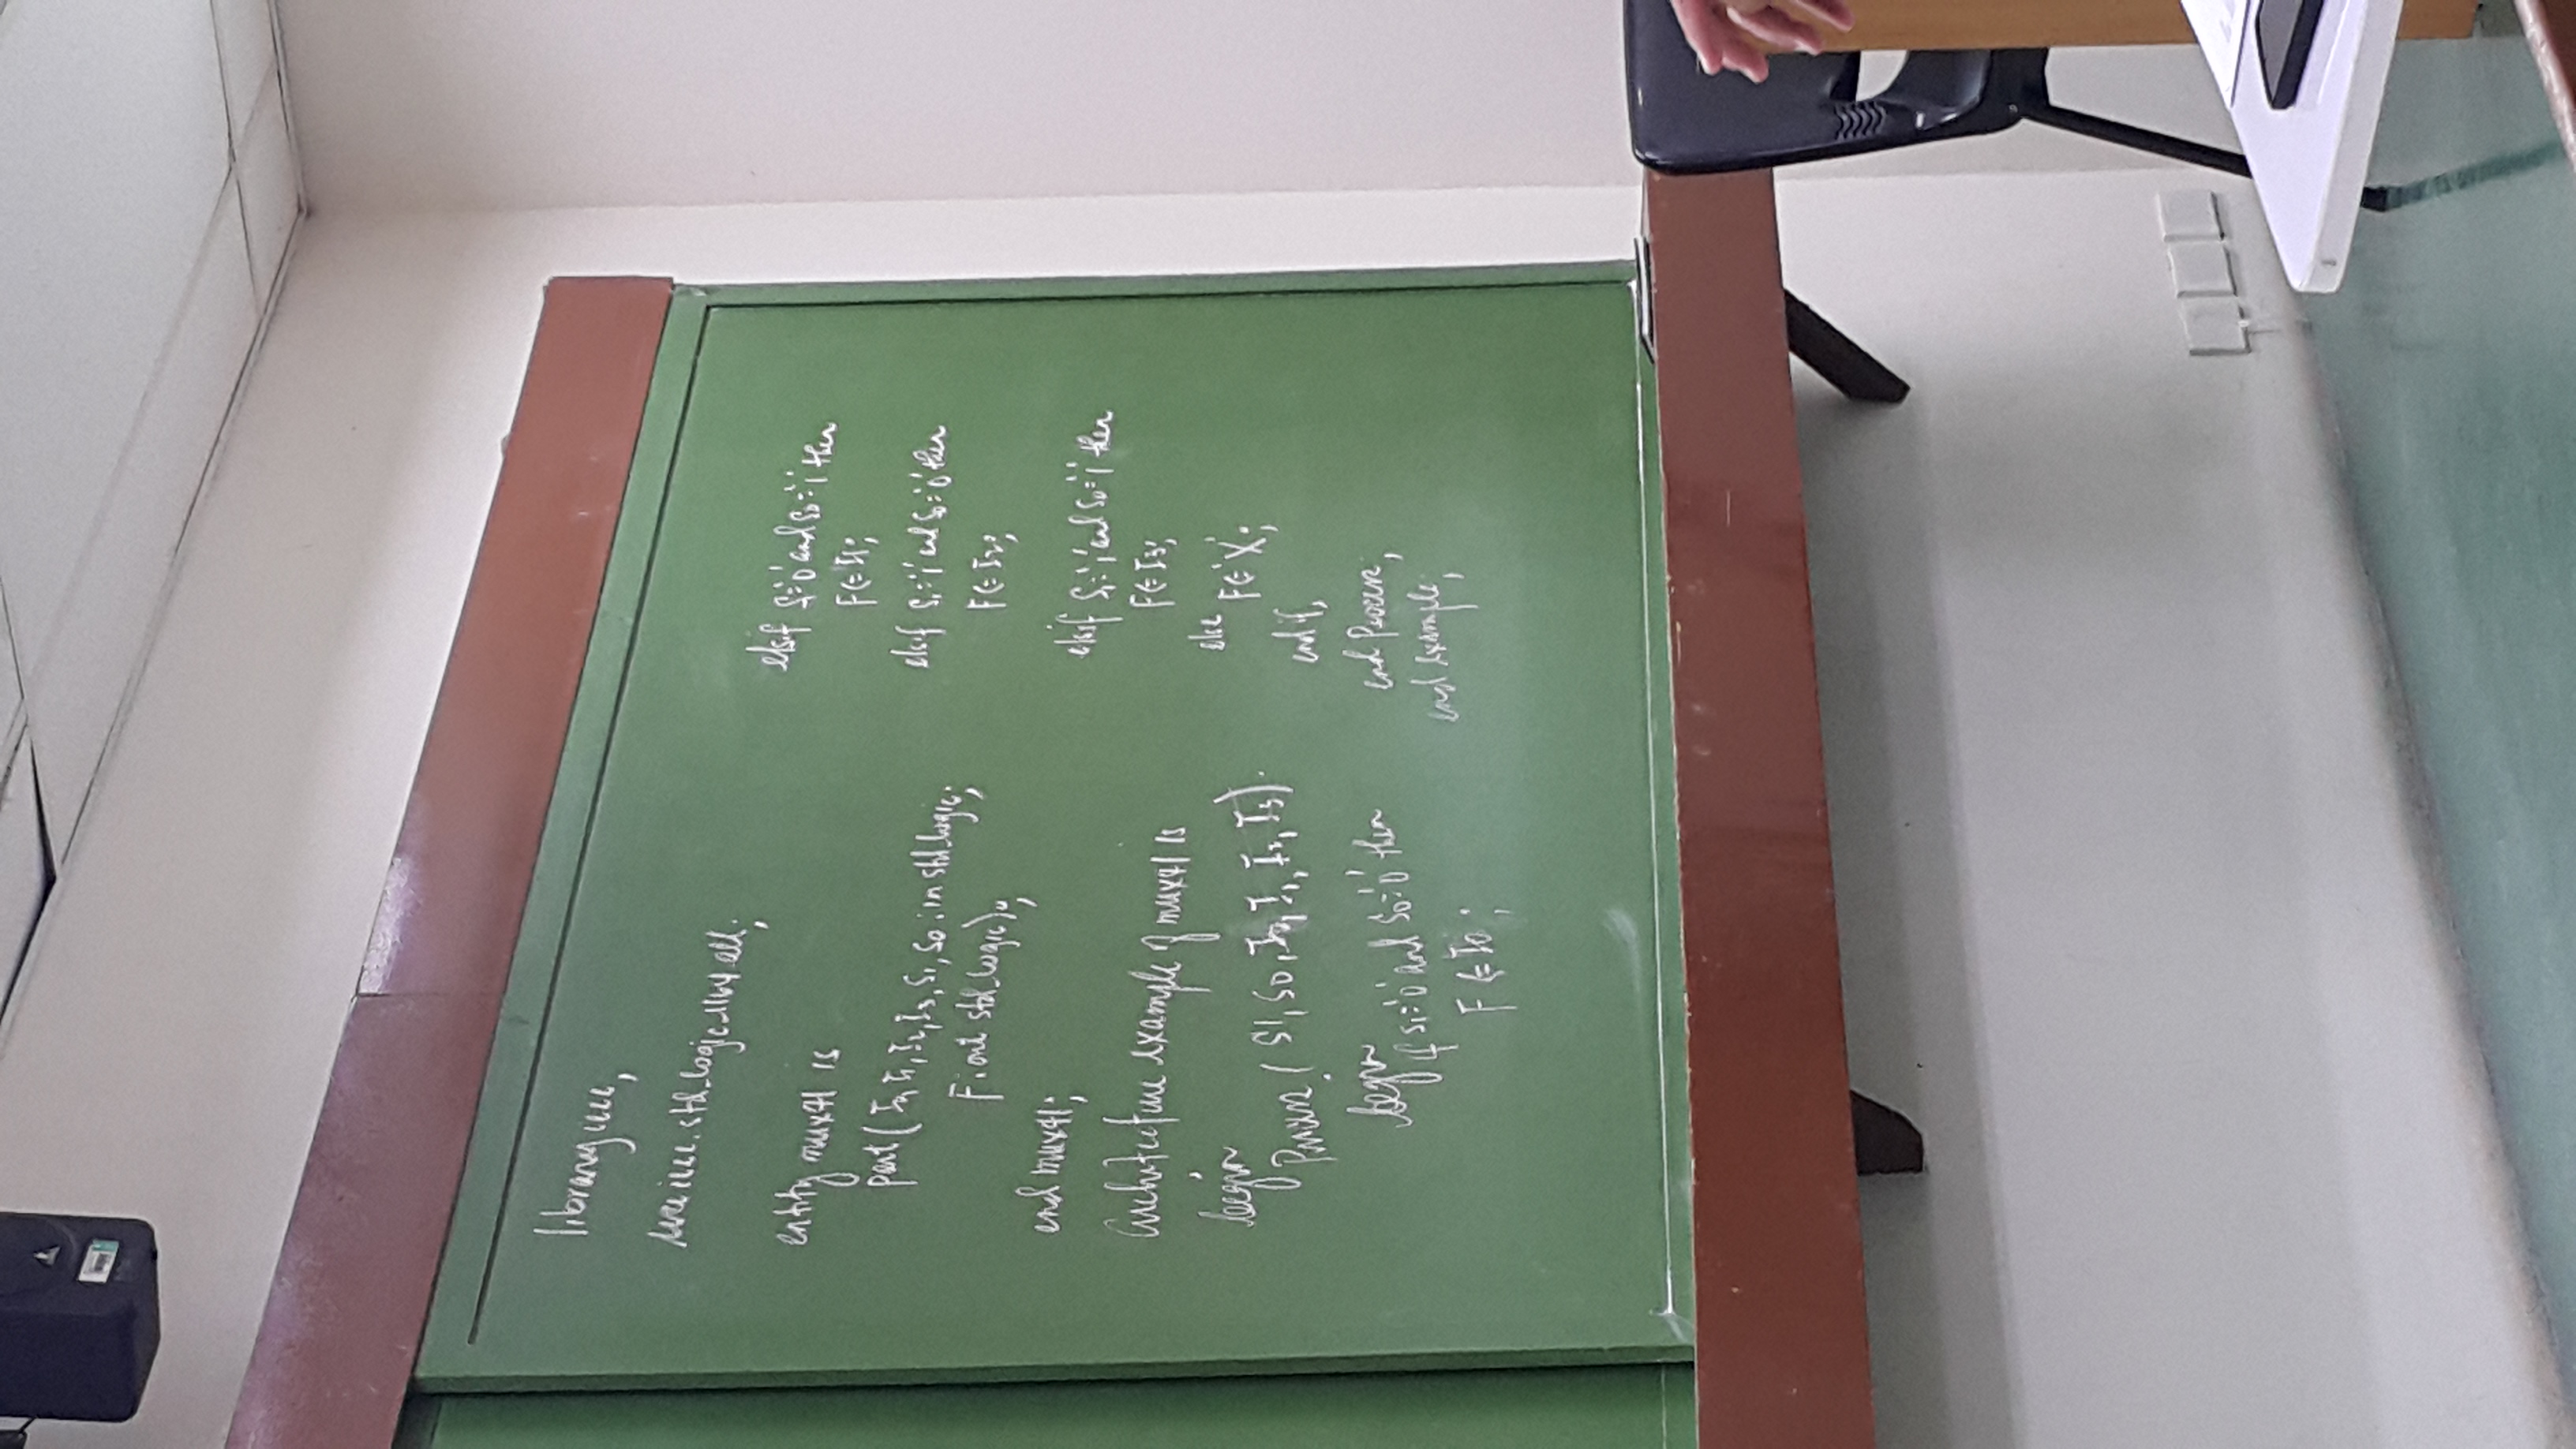 library ieee;
use ieee.std_logic_1164.all;
entity mux41 is
port(I0, I1, I2, I3, S1, S0 : in std_logic;
F: out std_logic);
end mux41;
Architecture example of mux41 is
begin
Process (S1, S0, I0, I1, I2, I3).
begin
if S1='0' and S0='0' then
F <= I0;
elsif S1='0' and S0='1' then
F <= I1;
elsif S1='1' and S0='0' then
F <= I2;
elsif S1='1' and S0='1' then
F <= I3;
else
F <= 'X';
end if;
end Process;
end example;